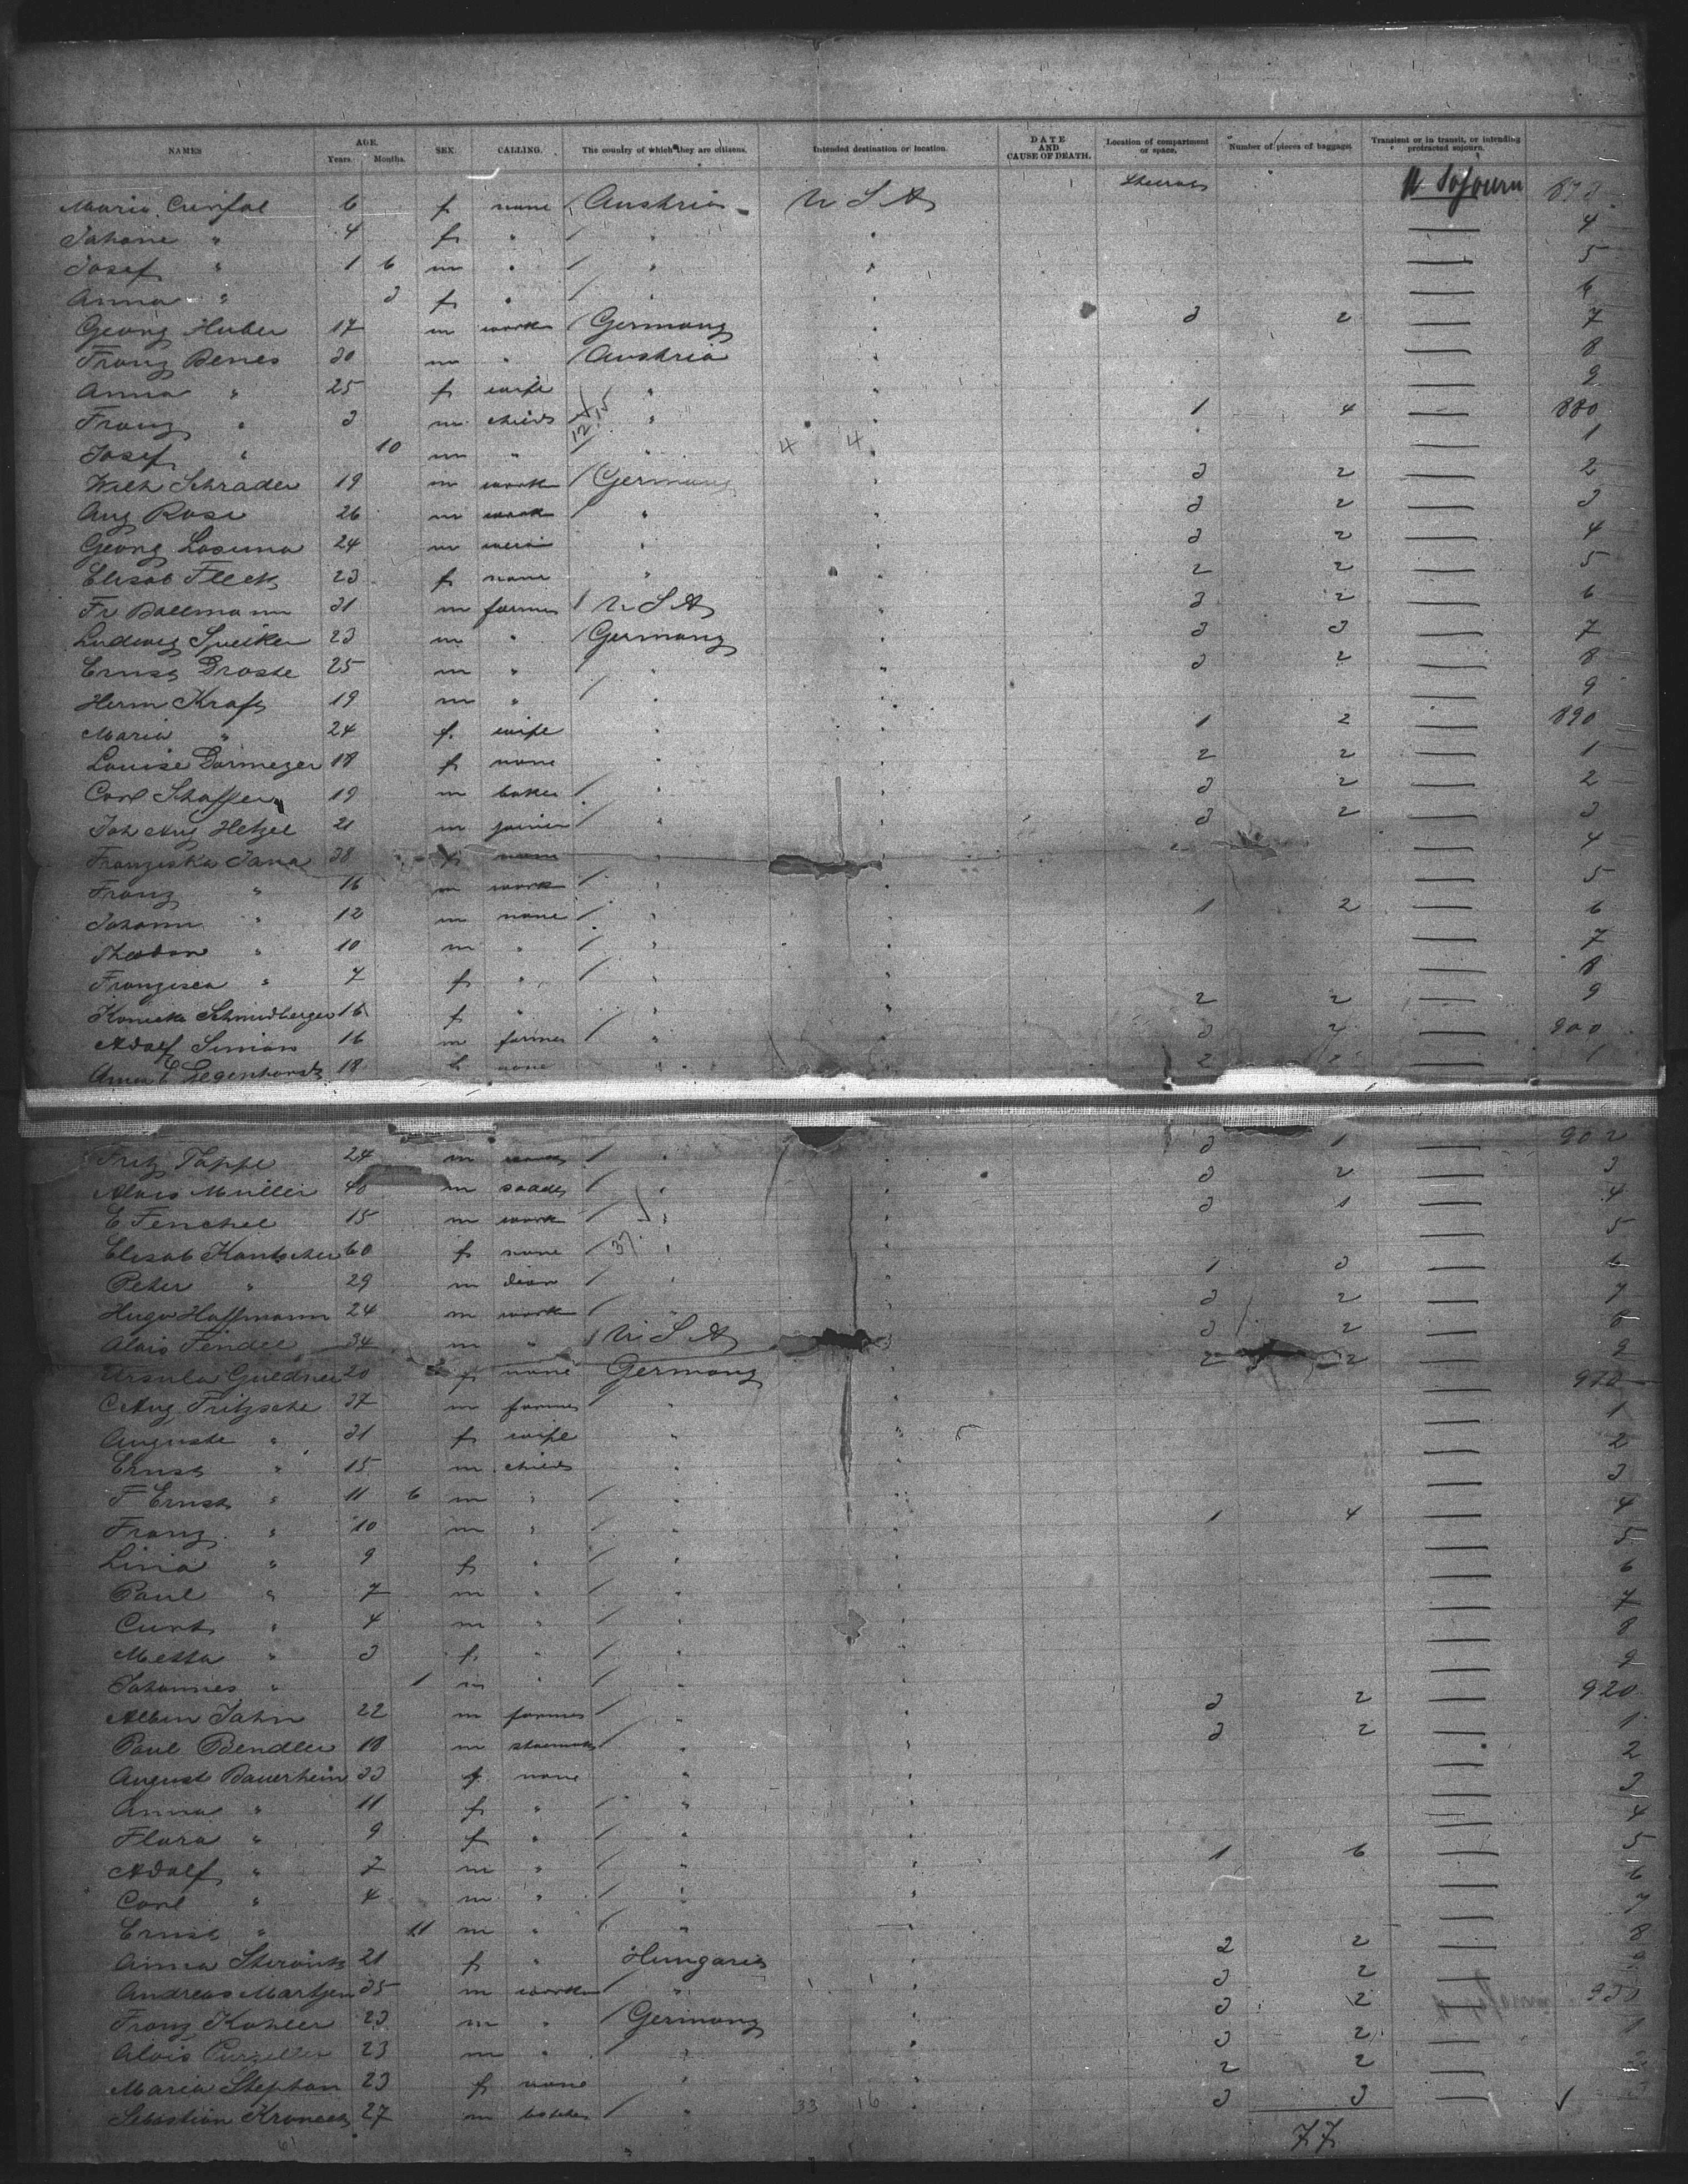 NAMES AGE. Years. Months. SEX. CALLING. The country of which they are citizens. Intended destination or location. DATE AND CAUSE OF DEATH. Location of compartment or space. Number of pieces of baggage. Transient or in transit, or intending protracted sojourn.
Maria 6 f none / Austria U S A Sojourn
" 4 f " / " " — 4
Josef " 1 6 m " / " " — 5
Anna " 3 f " / " " — 6
Georg Huber 17 m work / Germany " 3 2 — 7
Franz Benes 30 m " / Austria " — 8
Anna " 25 f wife " " — 9
Franz " 3 m child / " " 1 4 — 880
Josef " 10 m " / " 4 4 " — 1
Wilh Schrader 19 m work / Germany " 3 2 — 2
Aug Rose 26 m work / " " 3 2 — 3
Georg 24 m " " 3 2 — 4
Elisab Fleck 23 f none " " 2 2 — 5
Fr Ballmann 31 m farmer / U S A " 3 2 — 6
Ludwig Speiker 23 m " / Germany " 3 3 — 7
Ernst Droste 25 m " / " " 3 2 — 8
Herm Kraft 19 m " / " " — 9
Maria " 24 f wife " " 1 2 — 890
Louise Dormeyer 18 f none " " 2 2 — 1
Carl Schaffer 19 m baker / " " 3 2 — 2
Joh Aug Hetzel 21 m joiner / " " 3 2 — 3
Franziska Jana 38 f none " — 4
Franz " 16 m work / " " — 5
Johann " 12 m none / " " 1 2 — 6
Theodor " 10 m " / " " — 7
Franzisca " 7 f " / " " — 8
Schmidberger 16 f " " " 2 2 — 9
Adolf Simon 16 m farmer / " " 3 2 — 900
Anna E Legenhorst 18 f none " " 2 2 — 1
Fritz Tappe 24 m work / " 3 1 — 902
Alois Müller 40 m / " " 3 2 — 3
E Fenchel 15 m work / " " 3 1 — 4
Elisab 60 f none / 37 " — 5
Peter " 29 m / " " 1 3 — 6
Hugo Hoffmann 24 m work / " " 3 2 — 7
Alois Fendel 34 m " / U S A 3 2 — 8
Ursula 20 f none Germany 2 2 — 9
C Aug Fritzsche 37 m farmer / " — 910
Auguste " 31 f wife " " — 1
Ernst " 15 m child " " — 2
F Ernst " 11 6 m " / " " — 3
Franz " 10 m " / " " 1 4 — 4
Lina " 9 f " / " " — 5
Paul " 7 m " / " " — 6
Curt " 4 m " / " " — 7
Metta " 3 f " / " " — 8
Johannes " 1 m " / " " — 9
Albin Jahn 22 m farmer / " " 3 2 — 920
Paul Bendler 18 m / " " 3 2 — 1
August Bauerhein 33 f none " " — 2
Anna " 11 f " / " " — 3
Flora " 9 f " / " " — 4
Adolf " 7 m " / " " 1 6 — 5
Carl " 4 m " / " " — 6
Ernst " 11 m " / " " — 7
Anna 21 f " Hungaria " 2 2 — 8
Andreas Martjen 35 m work / " " 3 2 — 9
Franz Kohler 23 m " / Germany " 3 2 930
Alois 23 m " / " " 3 2 — 1
Maria Stephan 23 f none " " 2 2 —
Sebastian 27 m / " 33 16 " 3 3 —
77